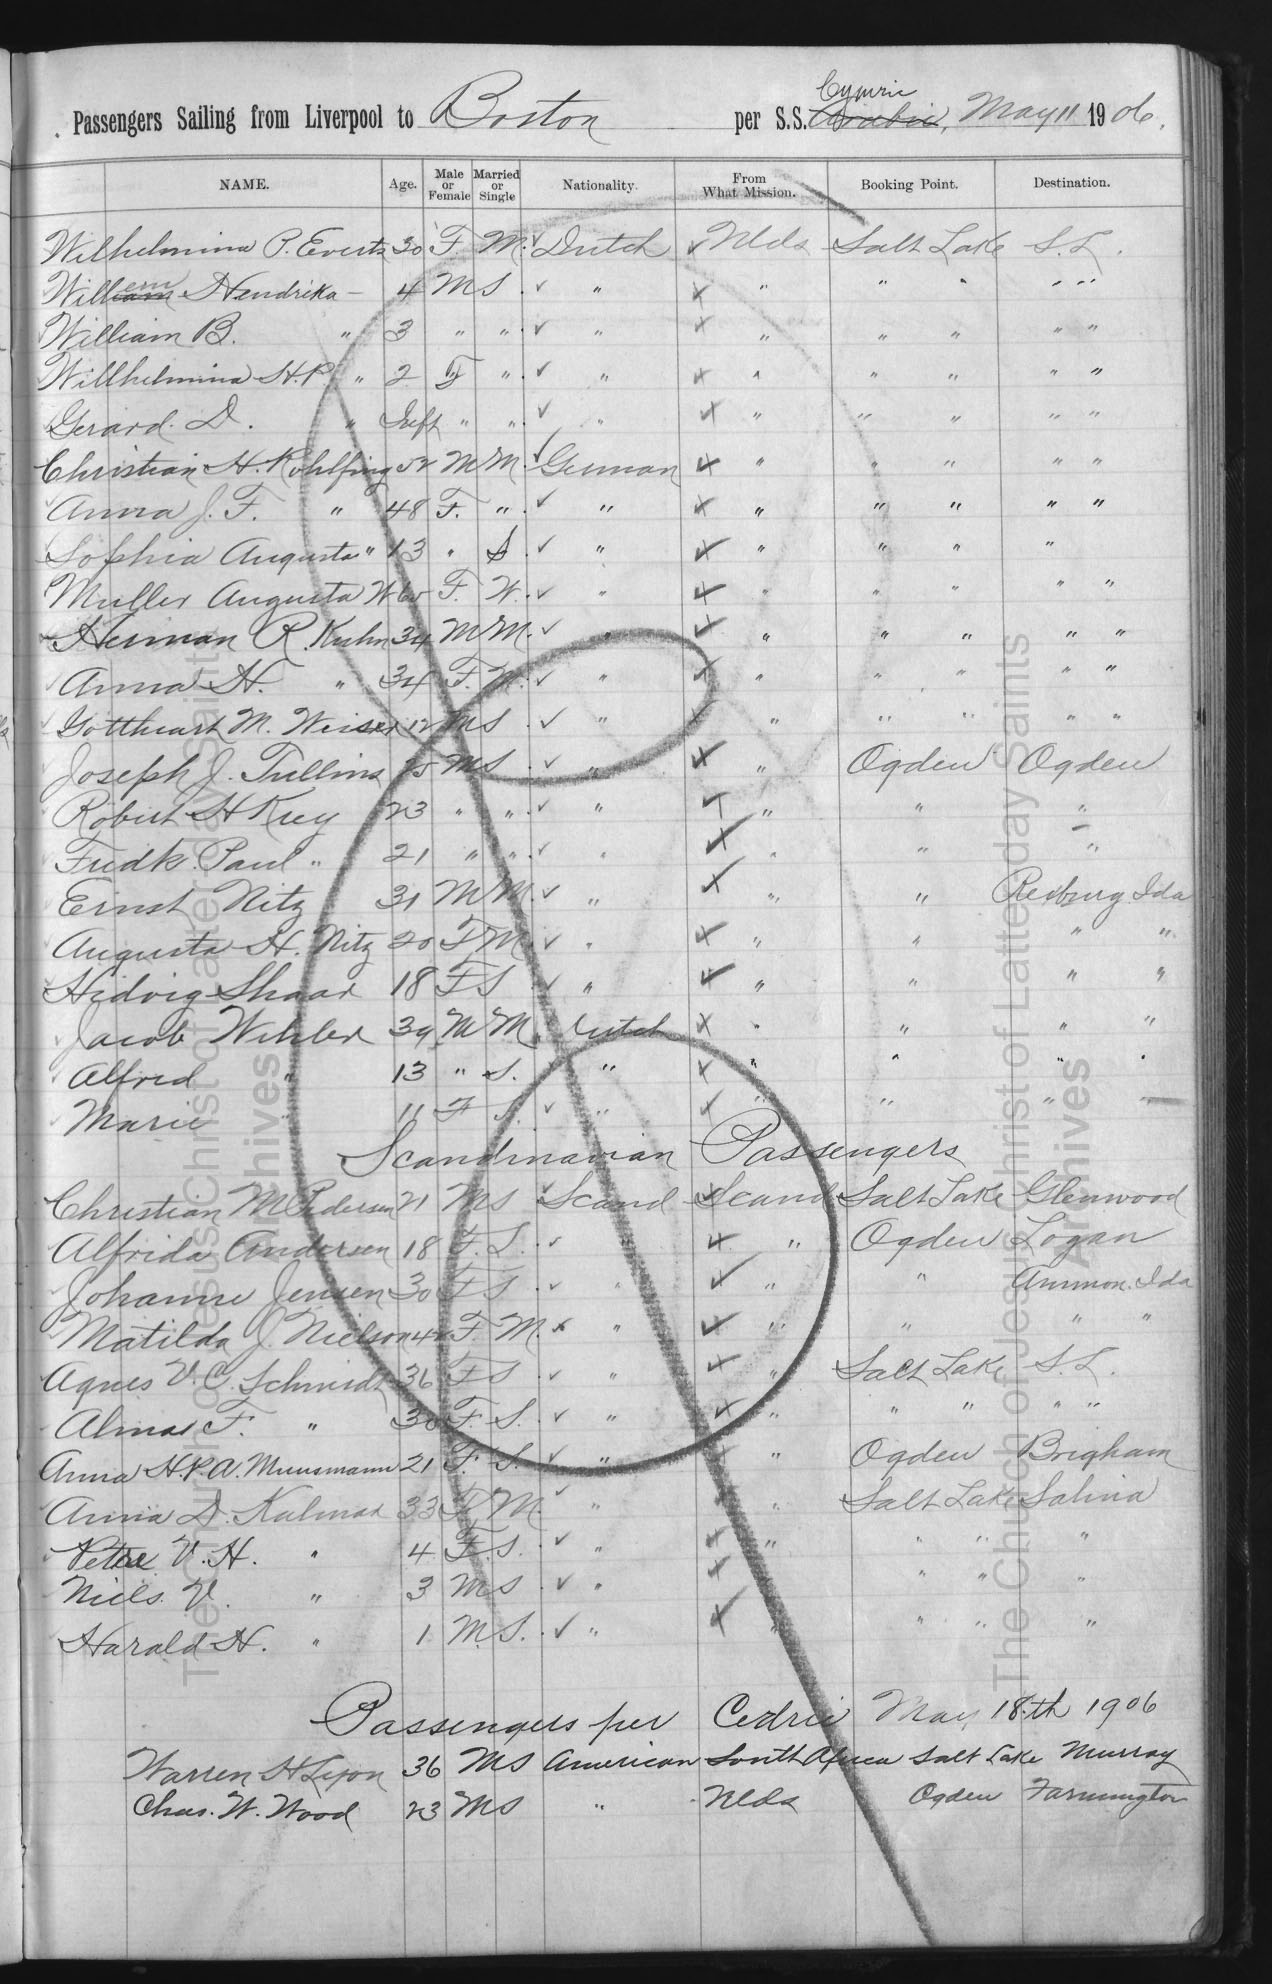 Passengers Sailing from Liverpool to Boston per S.S. Arabic, Cymric May 11 1906.
NAME. Age. Male or Female Married or Single Nationality. From What Mission. Booking Point. Destination.
Wilhelmina P. Everts 30 F. M. Dutch Nlds Salt Lake S. L.
William em Hendrika — 4 M S. " " " " " "
William B. " 3 " " " " " " " "
Willhelmina H.P. " 2 F " " " " " " "
Gerard. D. " Inft " " " " " " " "
Christian H. Kohlfing 52 M M. German " " " " "
Anna J. F. " 48 F. " " " " " " "
Sophia Augusta " 13 " S " " " " "
Muller Augusta W 60 F. W. " " " " " "
Herman R. Kuhn 34 M M. " " " " " "
Anna H. " 34 F. M. " " " " " "
Gottheart M. Weiser 12 M S " " " " " "
Joseph J. Tullins M S " " Ogden Ogden
Robert H Krey 23 " " " " " "
Fredk. Paul " 21 " " " " " "
Ernst Nitz 31 M M " " " Rexburg Ida
Augusta H. Nitz 20 F M " " " " "
Hidvig Shaar 18 F S " " " " "
Jacob Wehler 39 M M. Dutch " " " "
Alfred " 13 " S. " " " " "
Marie " 11 F S. " " " " "
Scandinavian Passengers
Christian M Pedersen 21 M S Scand Scand Salt Lake Glenwood
Alfrida Andersen 18 F. S. " " Ogden Logan
Johanne Jensen 30 F S " " " Ammon. Ida
Matilda J. Nielson 42 F. M. " " " " "
Agnes V. C. Schmidt 36 F S " " Salt Lake S. L.
Alma F. " 30 F. S. " " " " " "
Anna H.P.A. Muusmann 21 F. S. " " Ogden Brigham
Anna D. Kalmar 33 F. M. " " Salt Lake Salina
Petre V. H. " 4 F. S. " " " " "
Niels V. " 3 M S " " " "
Harald H. " 1 M. S. " " " " "
Passengers per Cedric May 18th 1906
Warren H Lyon 36 M S American South Africa Salt Lake Murray
Chas. W. Wood 23 M S " Nlds Ogden Farmington
The Church of Jesus Christ of Latter-day Saints
Archives
The Church of Jesus Christ of Latter-day Saints
Archives